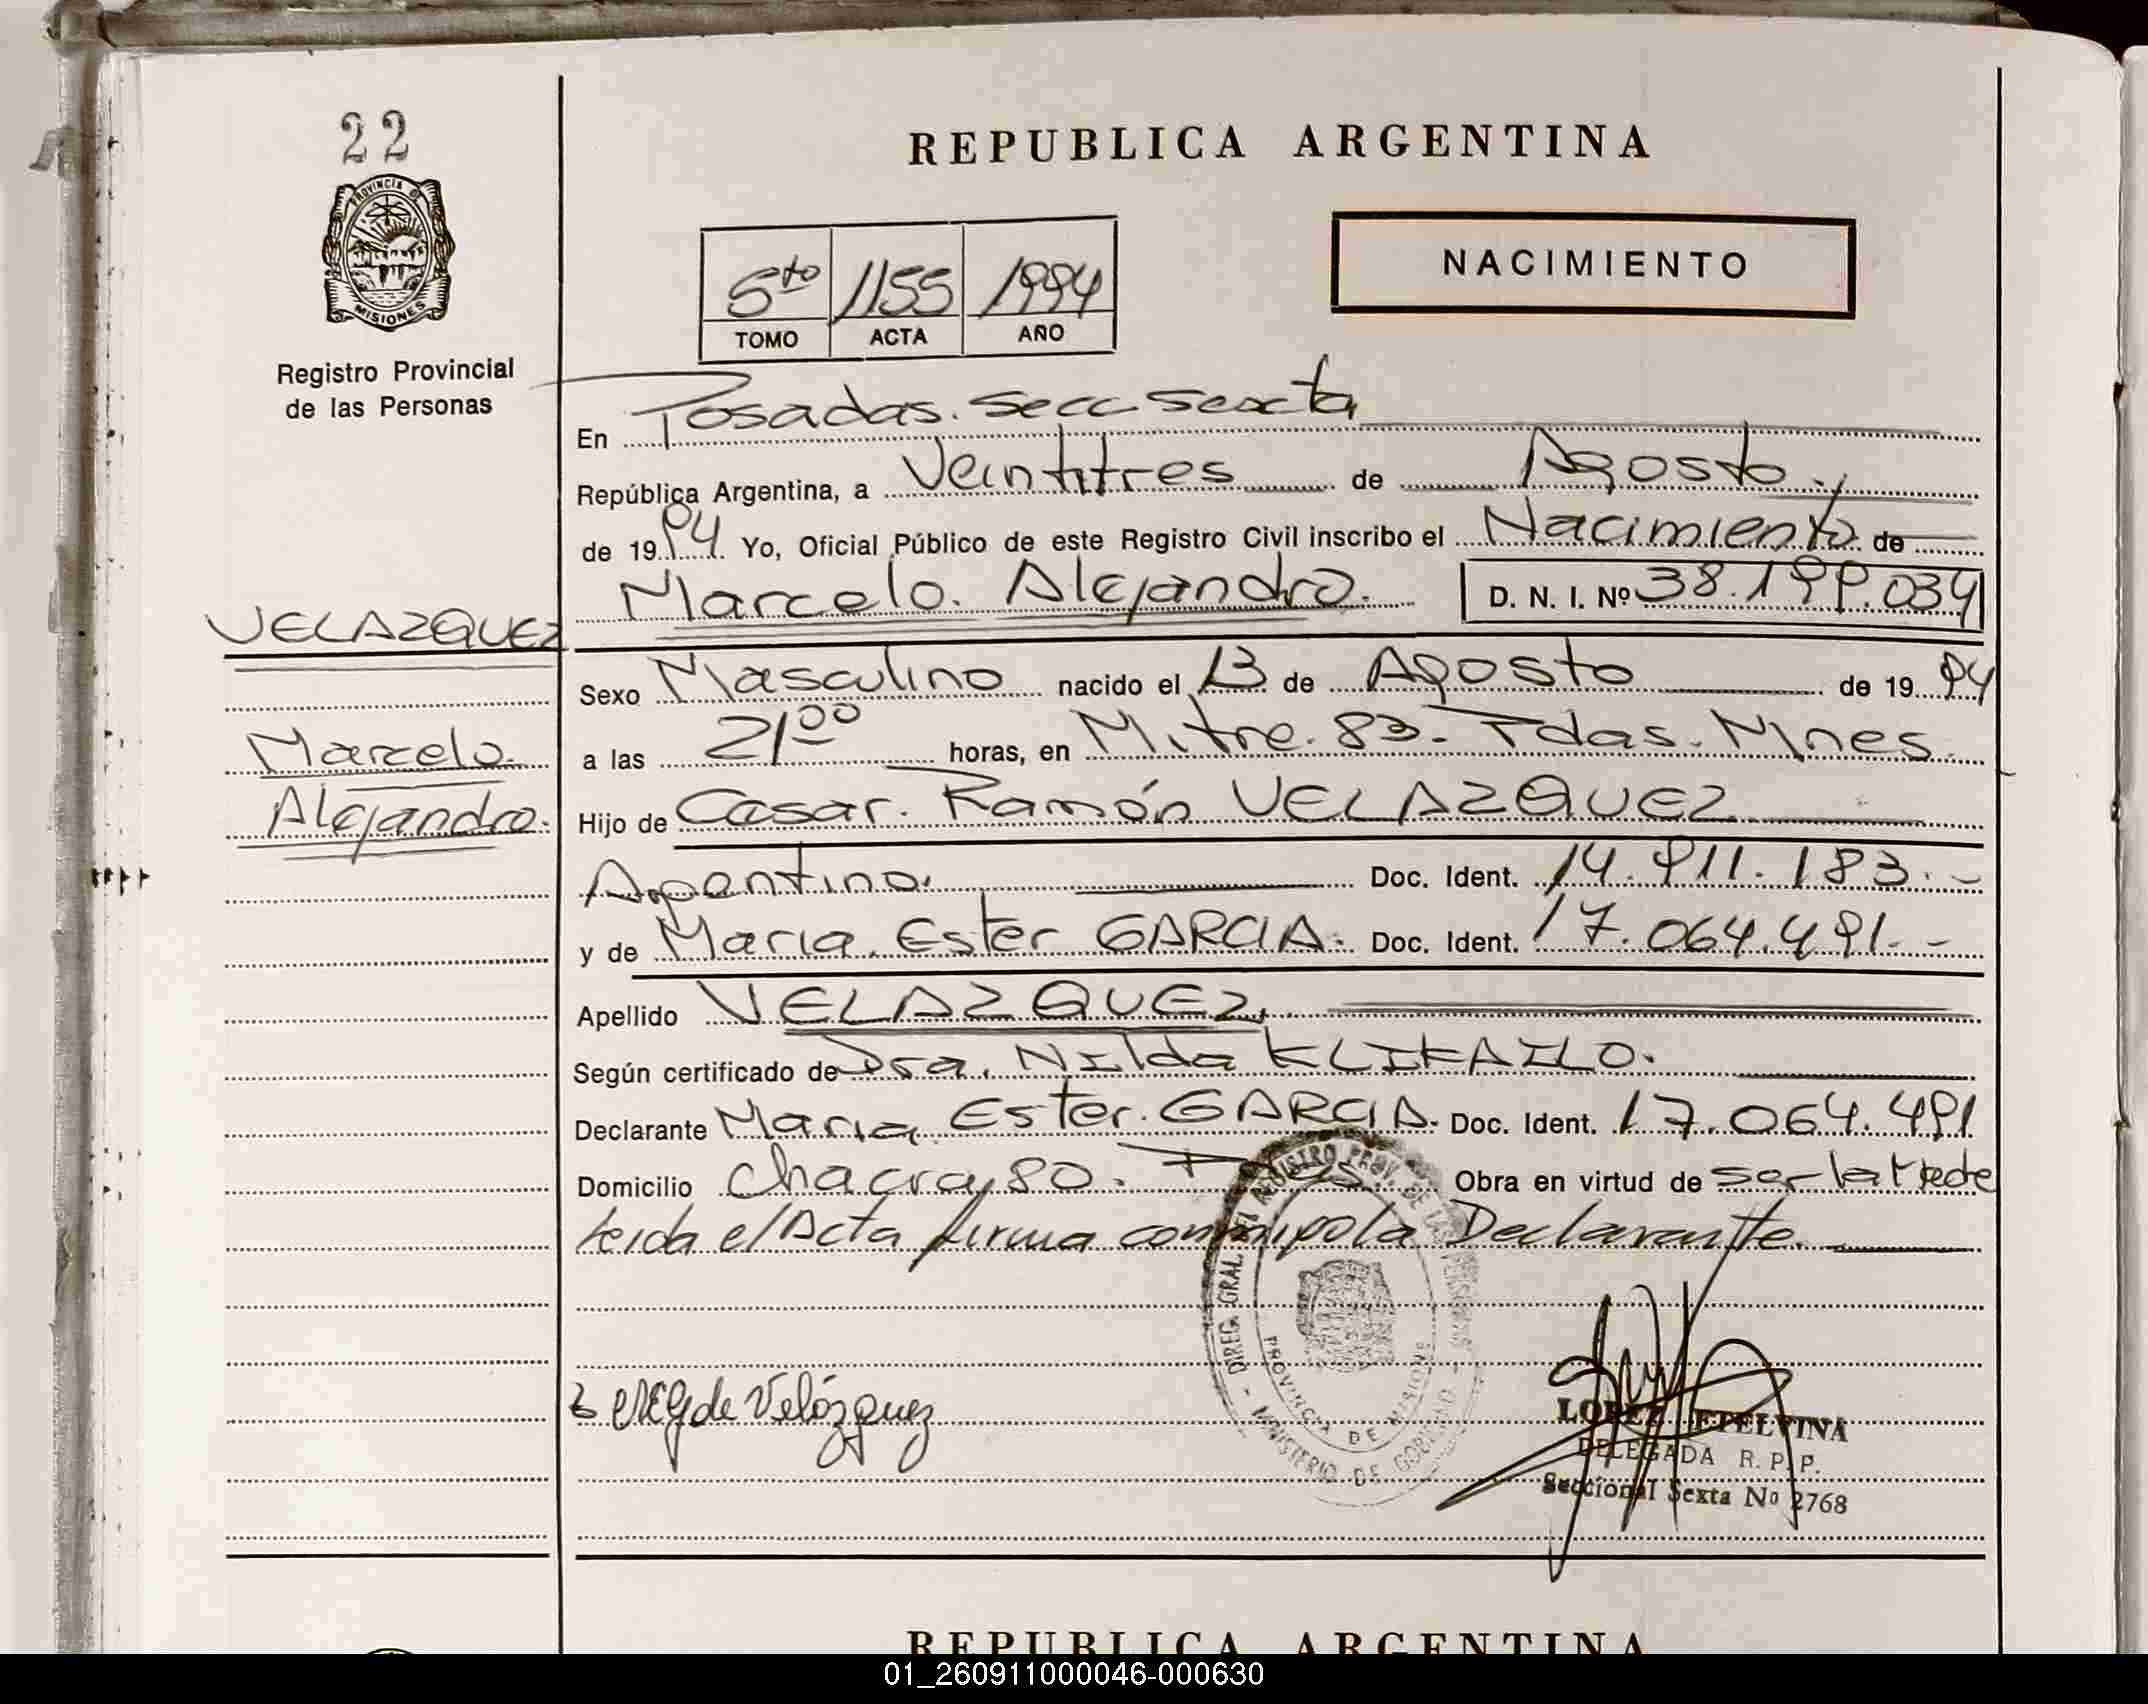 22
PROVINCIA DE
MISIONES
Registro Provincial
de las Personas
REPUBLICA ARGENTINA
5to 1155 1994
TOMO ACTA AÑO
NACIMIENTO
En Posadas. Secc Sexta
República Argentina, a Veintitres de Agosto
de 1994 Yo, Oficial Público de este Registro Civil inscribo el Nacimiento de
Marcelo. Alejandro. D. N. I. Nº 38.199.034
VELAZQUEZ
Marcelo.
Alejandro.
Sexo Masculino nacido el 13 de Agosto de 1994
a las 21 00 horas, en Mitre. 83- Pdas. Mnes.
Hijo de Cesar. Ramón VELAZQUEZ
Argentino. Doc. Ident. 14.911.183.-
y de Maria. Ester GARCIA. Doc. Ident. 17.064.491.-
Apellido VELAZQUEZ.
Según certificado de Dra. Nilda KLIKAILO.
Declarante Maria Ester. GARCIA. Doc. Ident. 17.064.491
Domicilio Chacra 80. Obra en virtud de ser la
leida el Acta firma conmigo la Declarante.
DIREG. GRAL. DEL REGISTRO PROV. DE LAS PERSONAS
PROVINCIA DE MISIONES
MINISTERIO DE GOBIERNO
de Velázquez
LOPEZ ETELVINA
DELEGADA R. P. P.
Seccional Sexta Nº 2768
REPUBLICA ARGENTINA
01_260911000046-000630